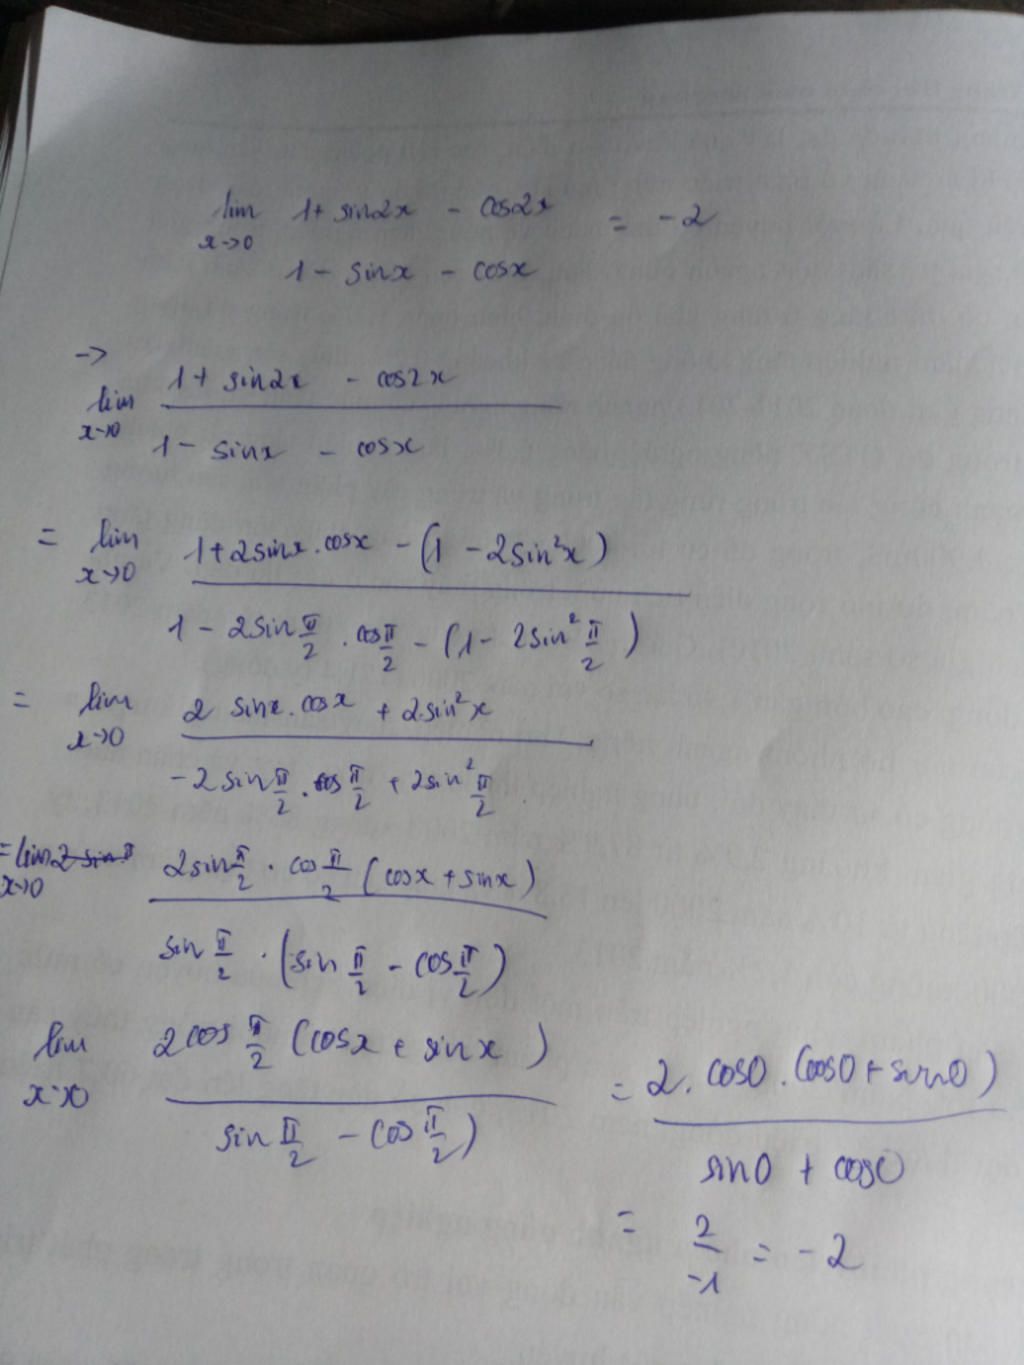 lim 1 + sin2x - cos2x = -2
x→0
1 - sinx - cosx
→
lim 1 + sin2x - cos2x
x→0 1 - sinx - cosx
= lim 1 + 2sinx.cosx - (1 - 2sin²x)
x→0 1 - 2sin π/2 . cos π/2 - (1 - 2sin² π/2)
= lim 2 sinx.cosx + 2sin²x
x→0 -2sin π/2 . cos π/2 + 2sin² π/2
= lim 2 sin π 2sin π/2 . cos π/2 (cosx + sinx)
x→0 sin π/2 . (sin π/2 - cos π/2)
lim 2cos π/2 (cosx + sinx)
x→0 sin π/2 - cos π/2)
= 2.cos0.(cos0 + sin0)
sin0 + cos0
= 2/-1 = -2